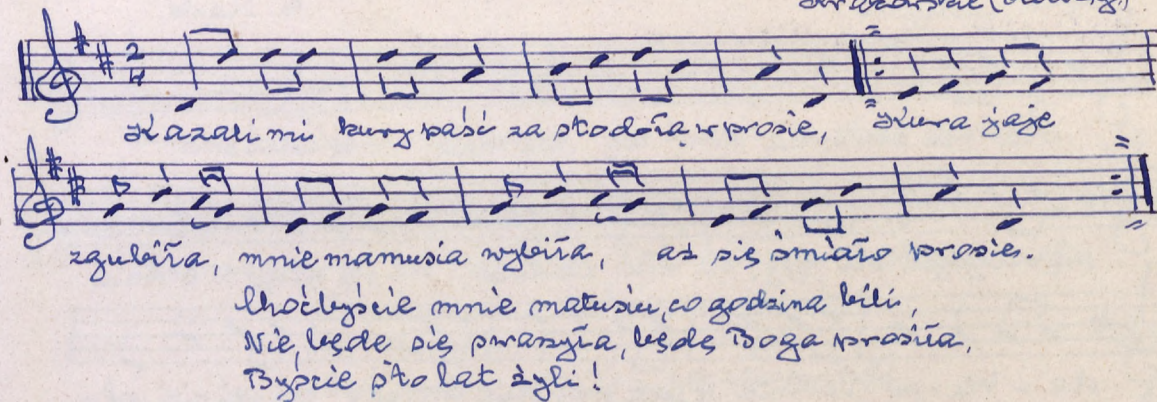 Kazali mi kury paść za stodołą w prosie, Kura jaje
zgubiła, mnie mamusia wybiła, aż się śmiało prosie.
Choćbyście mnie matusiu, co godzina bili,
Nie, będę się praszyła, będę Boga prosiła,
Byście sto lat żyli!